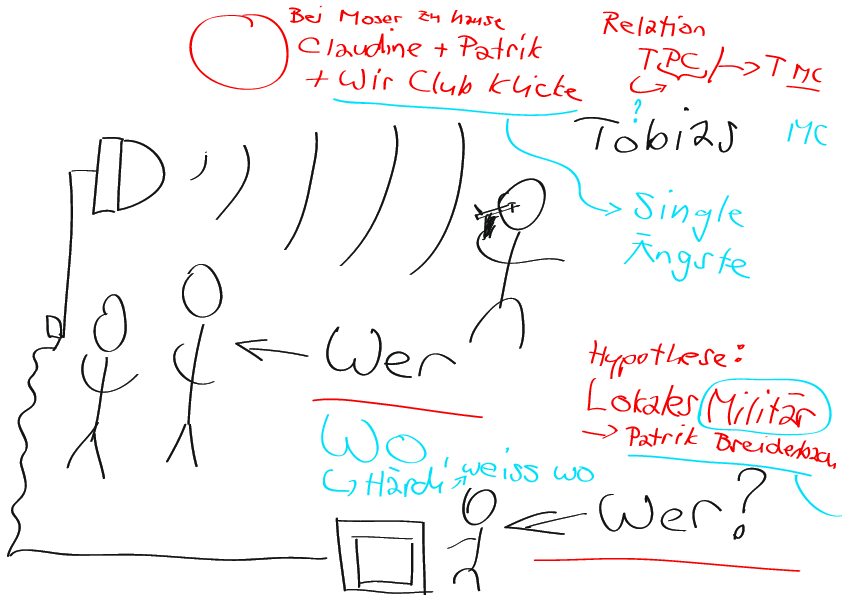 Bei Moser zu hause
Claudine + Patrik
+ Wir Club Klicke
Relation
TPC → T MC
?
Tobias
MC
Single
Ängste
Wer
Hypothese:
Lokales Militär
→ Patrik Breidenbach
Wo
↳ Härdi weiss wo
Wer?